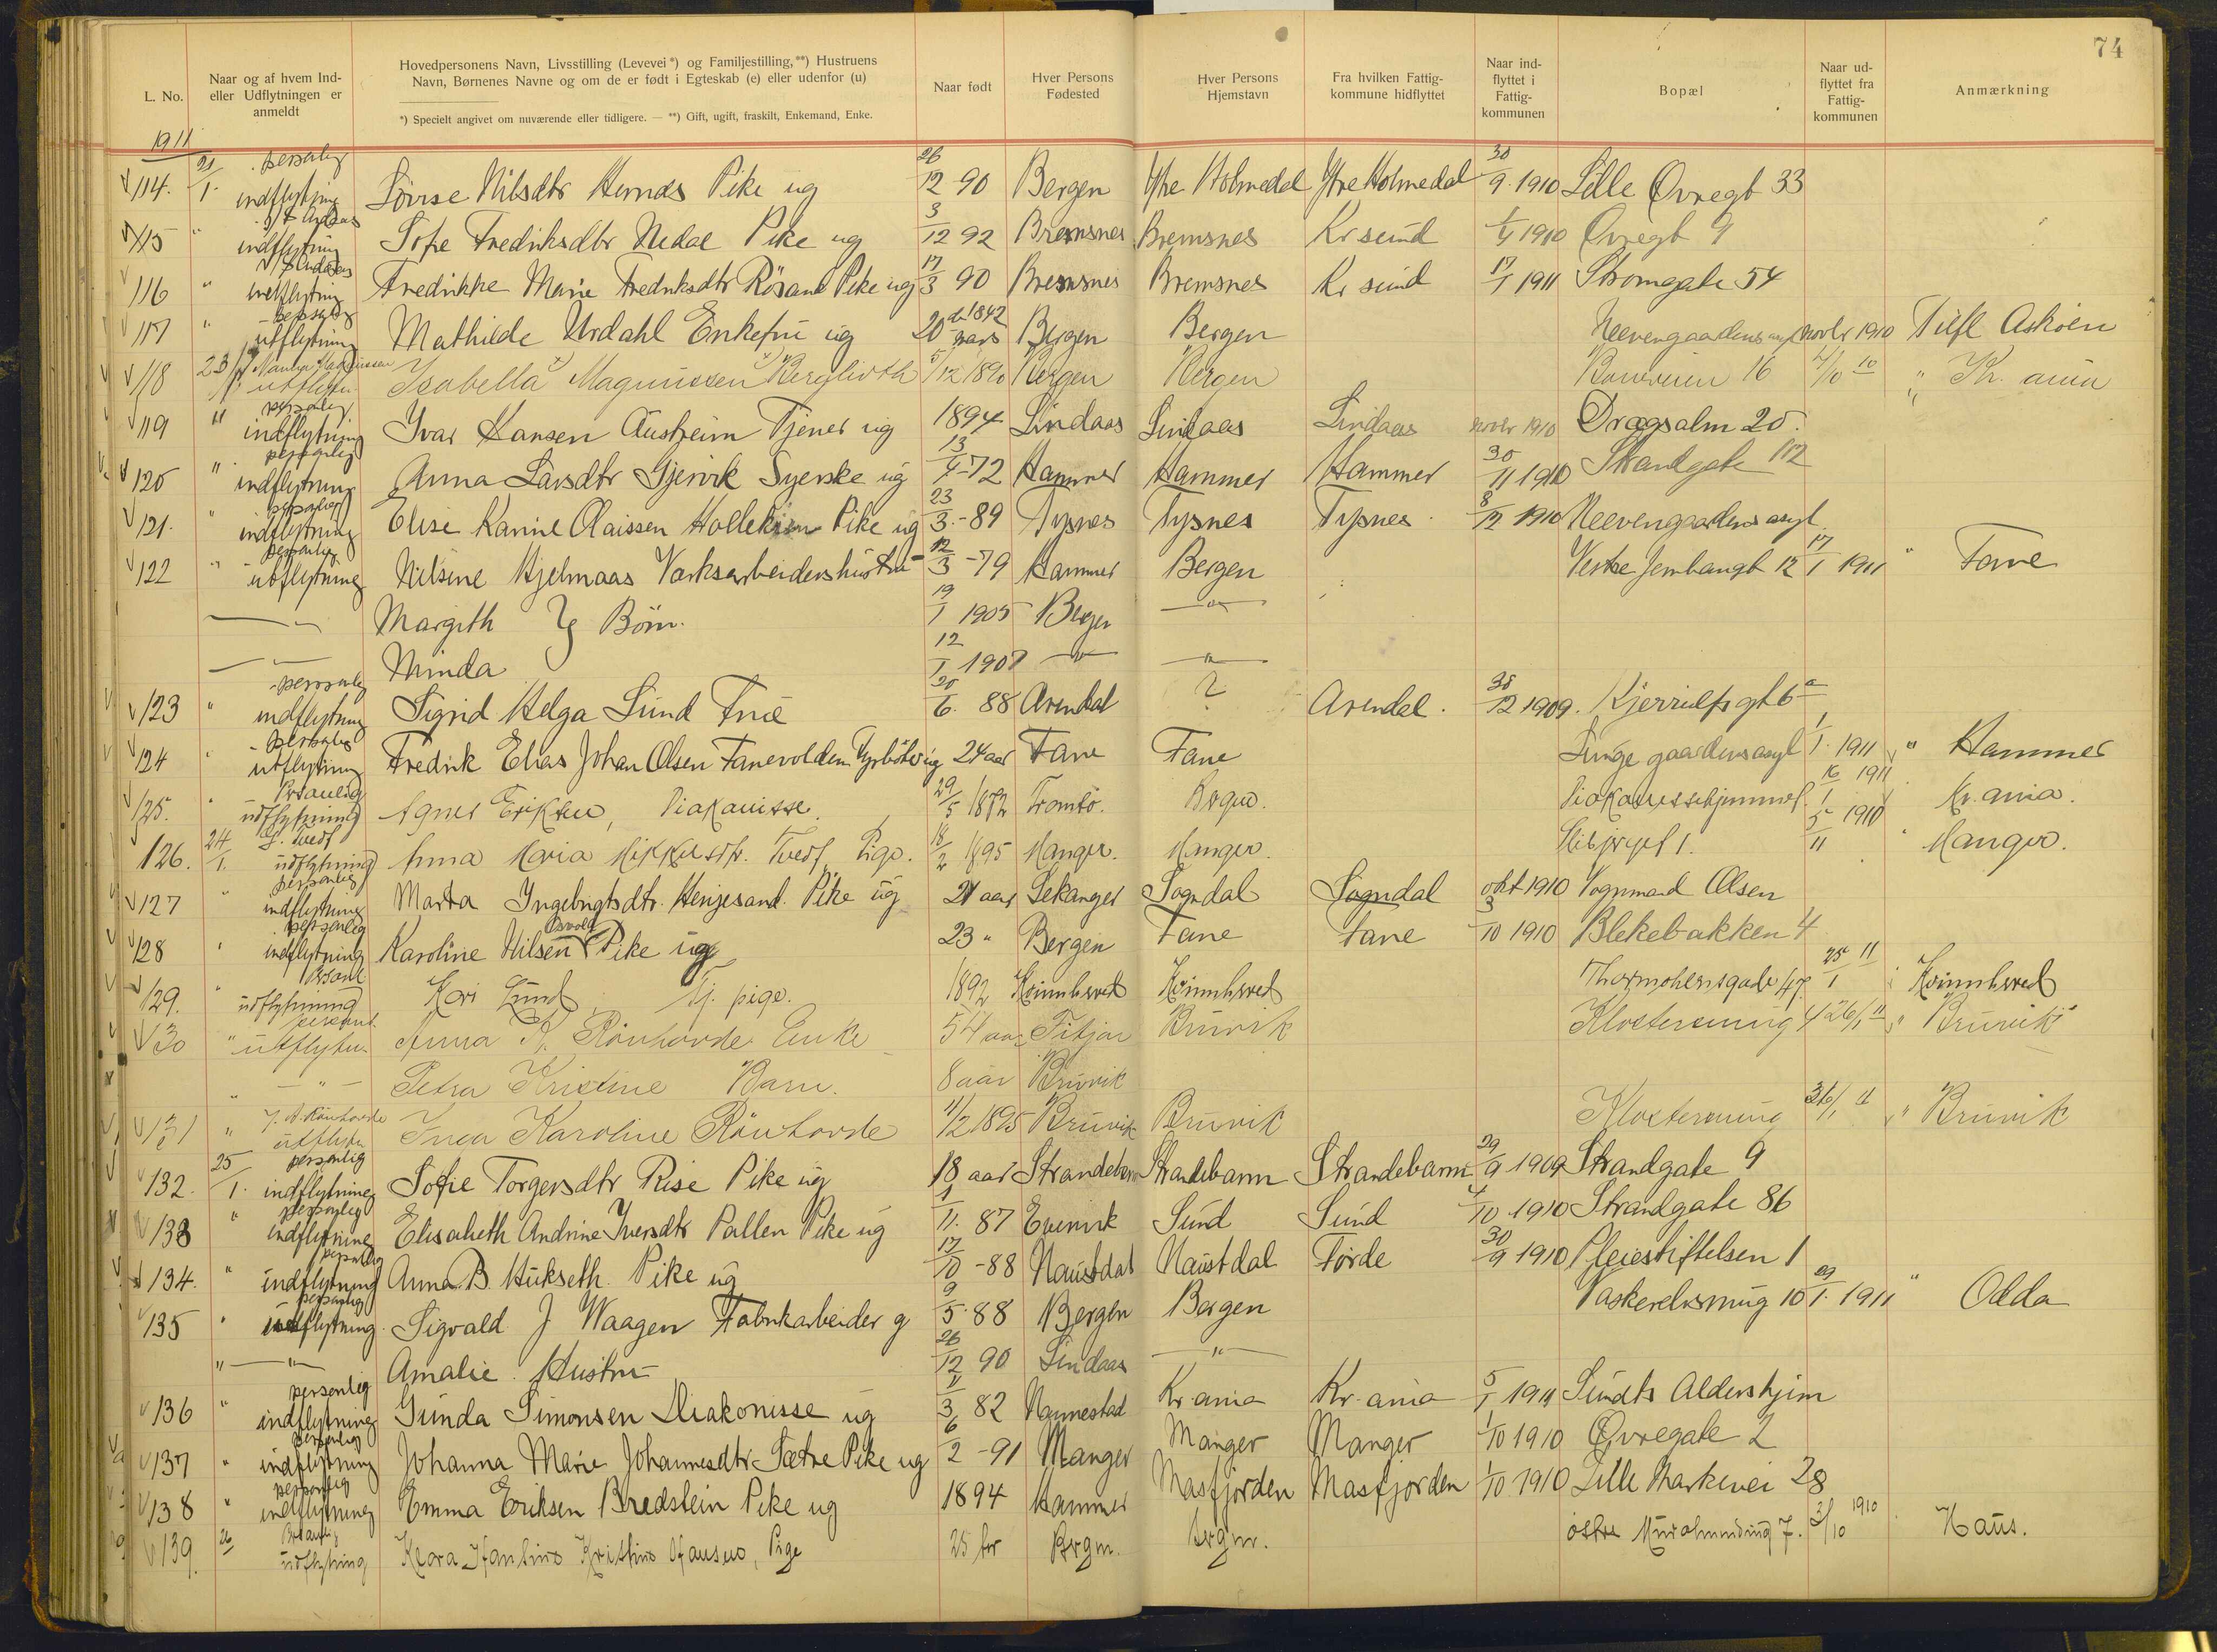 74
L. No.
Naar og af hvem Ind- eller Udflytningen er anmeldt
Hovedpersonens Navn, Livsstilling (Levevei*) og Familjestilling,**) Hustruens Navn, Børnenes Navne og om de er født i Egteskab (e) eller udenfor (u)
*) Specielt angivet om nuværende eller tidligere. — **) Gift, ugift, fraskilt, Enkemand, Enke.
Naar født
Hver Persons Fødested
Hver Persons Hjemstavn
Fra hvilken Fattigkommune hidflyttet
Naar indflyttet i Fattigkommunen
Bopæl
Naar udflyttet fra Fattigkommunen
Anmærkning
1911
114. 21/1. personlig indflytning Lovise Nilsdtr Hernæs Pike ug 26/12 90 Bergen Ytre Holmedal Ytre Holmedal 30/9 1910 Lille Øvregt 33
115 " indflytning Sofie Fredriksdtr Nedal Pike ug 3/12 92 Bremsnes Bremsnes Kr sund 1910 Øvregt 9
116 " indflytning Fredrikke Marie Fredriksdtr Pike ug 17/3 90 Bremsnes Bremsnes Kr sund 17/1 1911 Strømgate 54
117 " personlig utflytning Mathilde Urdahl Enkefru ug 20 mars 1842 Bergen Bergen Neevengaardens asyl novbr 1910 Tilfl Askøen
118 23/1 utflytn Isabella Magnussen 5/12 1890 Bergen Bergen 16 /10 10 " Kr. ania
119 " personlig indflytning Ivar Hansen Austheim Tjener ug 1894 Lindaas Lindaas Lindaas novbr 1910 Dragsalm 20.
120 " personlig indflytning Anna Larsdtr Gjervik Syerske ug 13/4-72 Hammer Hammer Hammer 30/11 1910 Strandgate 112
121. " personlig indflytning Elise Karine Olaissen Pike ug 23/3-89 Tysnes Tysnes Tysnes 8/12 1910 Neevengaardens asyl.
122 " personlig utflytning Nilsine Hjelmaas Verksarbeidershustru 12/3-79 Hammer Bergen Vestre Jernbanegt 12 17/1 1911 " Fane
— " — Margith } Børn. 19/1 1905 Bergen — " —
— " — Minda 12/1 1907 — " — — " —
123 " personlig indflytning Sigrid Helga Lund Frue 20/6. 88 Arendal ? Arendal. 12 1909. 6a
124 " personlig utflytning Fredrik Elias Johan Olsen Fanevolden ug 24 aar Fane Fane Lungegaardens asyl 1/1. 1911 " Hammer
125. " Personlig udflytning Agnes Eriksen, Diakonisse. 29/5 1872 Tromsø. Bergen. Diakonissehjemmet. 16/1 1911 Kr. ania.
126. 24/1. udflytning Anna Maria Mikkelsdtr. Tvedt, Pige. 18/2 1895 Manger. Manger. 1. 5/11 1910 " Manger.
127 " personlig indflytning Marta Ingebrigtsdtr. Henjesand. Pike ug 21 aar Lekanger Sogndal Sogndal okt 1910 Vognmand Olsen
128 " personlig indflytning Karoline Nilsen Pike ug 23 " Bergen Fane Fane 3/10 1910 Blekebakken 4
129. " udflytning Kari Lund, Tj. pige. 1892 Kvinnhered Kvinnhered Thormøhlensgade 47. 25/1 11 Kvinnhered
130 " personl. utflytn Anna K. Rønhovde Enke 54 aar Fitjar Bruvik Klostersmug 4 26/1 11 " Bruvik
— " — Petra Kristine Barn. 8 aar Bruvik
131 " A. Rønhovde utflytn Inga Karoline Rønhovde 11/2 1895 Bruvik Bruvik Klostersmug 26/1 11 " Bruvik
132. 25/1. personlig indflytning Sofie Torgersdtr Rise Pike ug 18 aar Strandebarm Strandebarm Strandebarm 29/9 1909 Strandgate 9
133 " personlig indflytning Elisabeth Andrine Iversdtr Pallen Pike ug 1/11. 87 Evenvik Sund Sund 4/10 1910 Strandgate 86
134. " personlig indflytning Anna B. Hukseth. Pike ug 17/10-88 Naustdal Naustdal Førde 30/9 1910 Pleiestiftelsen 1
135 " personlig utflytning. Sigvald J Waagen Fabrikarbeider g 9/5. 88 Bergen Bergen Vaskerelvsmug 10 1. 1911 " Odda
" — " — Amalie. Hustru 26/12 90 Lindaas — " —
136 " personlig indflytning Gunda Simonsen Diakonisse ug /3 82 Nannestad Kr. ania Kr. ania 5/1 1911 Sundts Aldershjem
137 " personlig indflytning Johanna Marie Johannesdtr Sætre Pike ug 6/2-91 Manger Manger Manger 1/10 1910 Øvregate 2
138 " personlig indflytning Emma Eriksen Bredstein Pike ug 1894 Hammer Masfjorden Masfjorden 1/10 1910 Lille Markevei 28
139. 26/ Personlig udflytning Klara Kristine Hansen, Pige 25 år Bergen. Bergen. østre Muralmending 7. /10 1910 Haus.